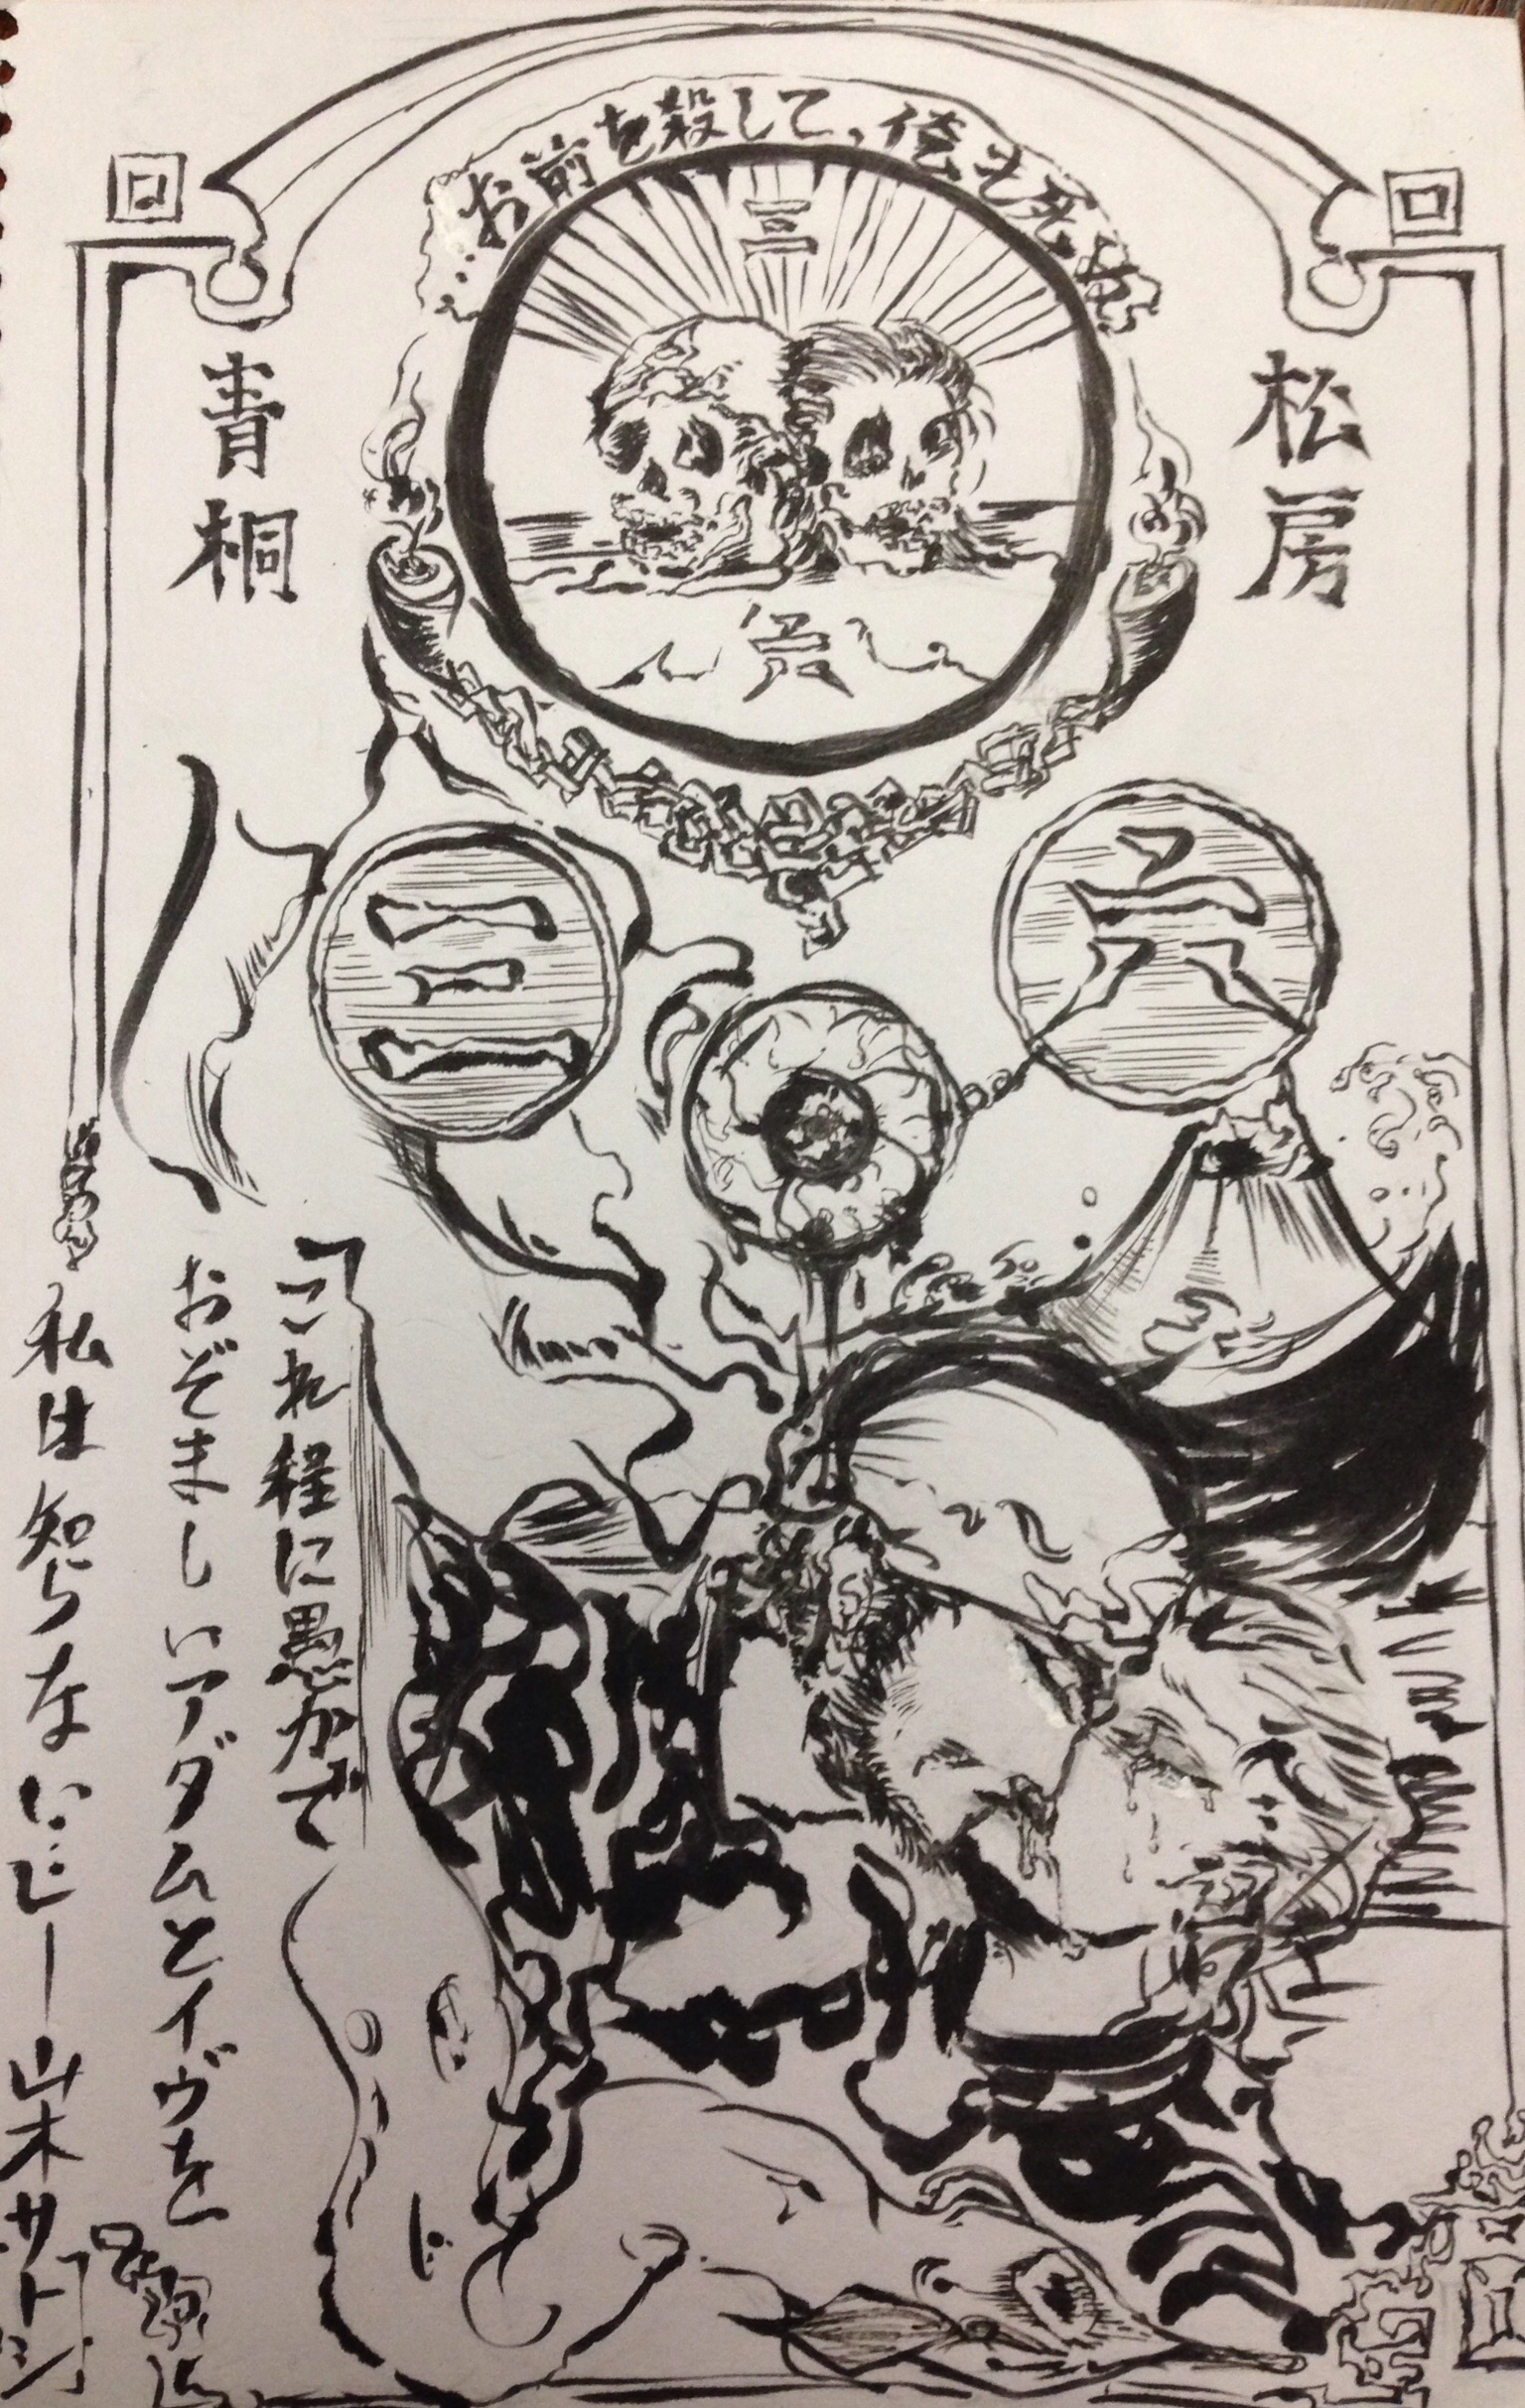 お前を殺して、俺も死ぬ…
三
松房
青桐
三
六
「これ程に愚かで
おぞましいアダムとイヴを
私は知らない…」—山本サトシ